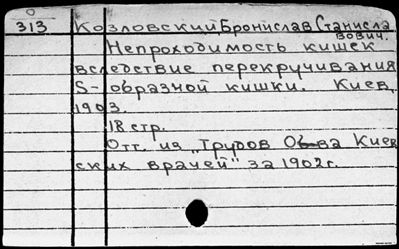 313 Козловский Бронислав Станисла
вович.
Непроходимость кишек
вследствие перекручивания
S-образной кишки. Киев,
1903.
18 стр.
Отт. из „Трудов Об-ва Киев
ских врачей" за 1902г.